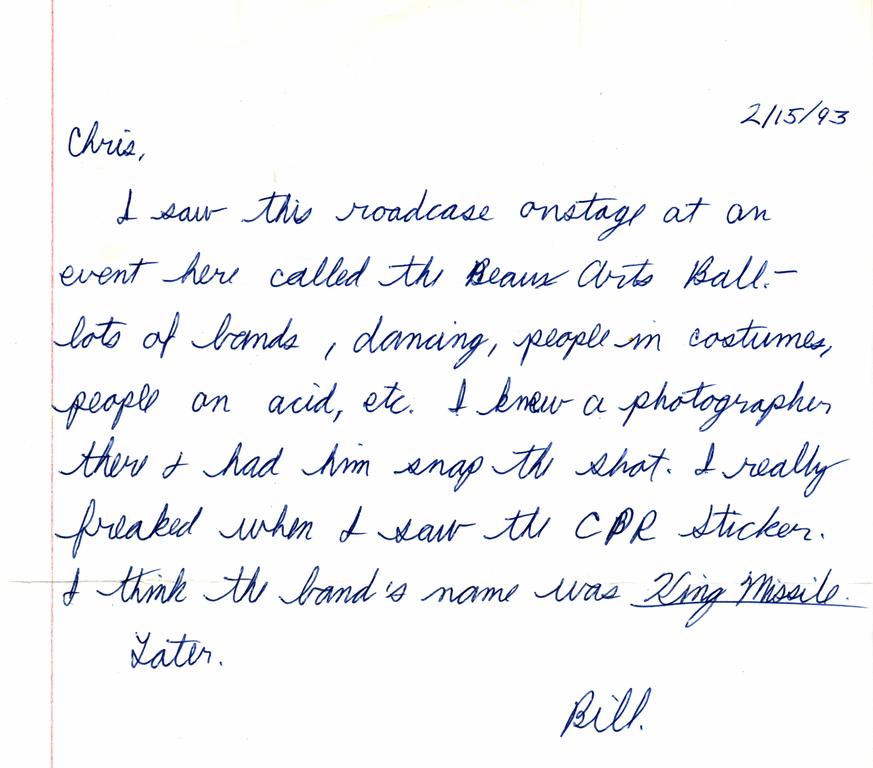 2/15/93
Chris,
I saw this roadcase onstage at an
event here called the Beaux Arts Ball.-
lots of bands, dancing, people in costumes,
people on acid, etc. I knew a photographer
there & had him snap the shot. I really
freaked when I saw the CPR sticker.
I think the band's name was King Missile.
Later.
Bill.